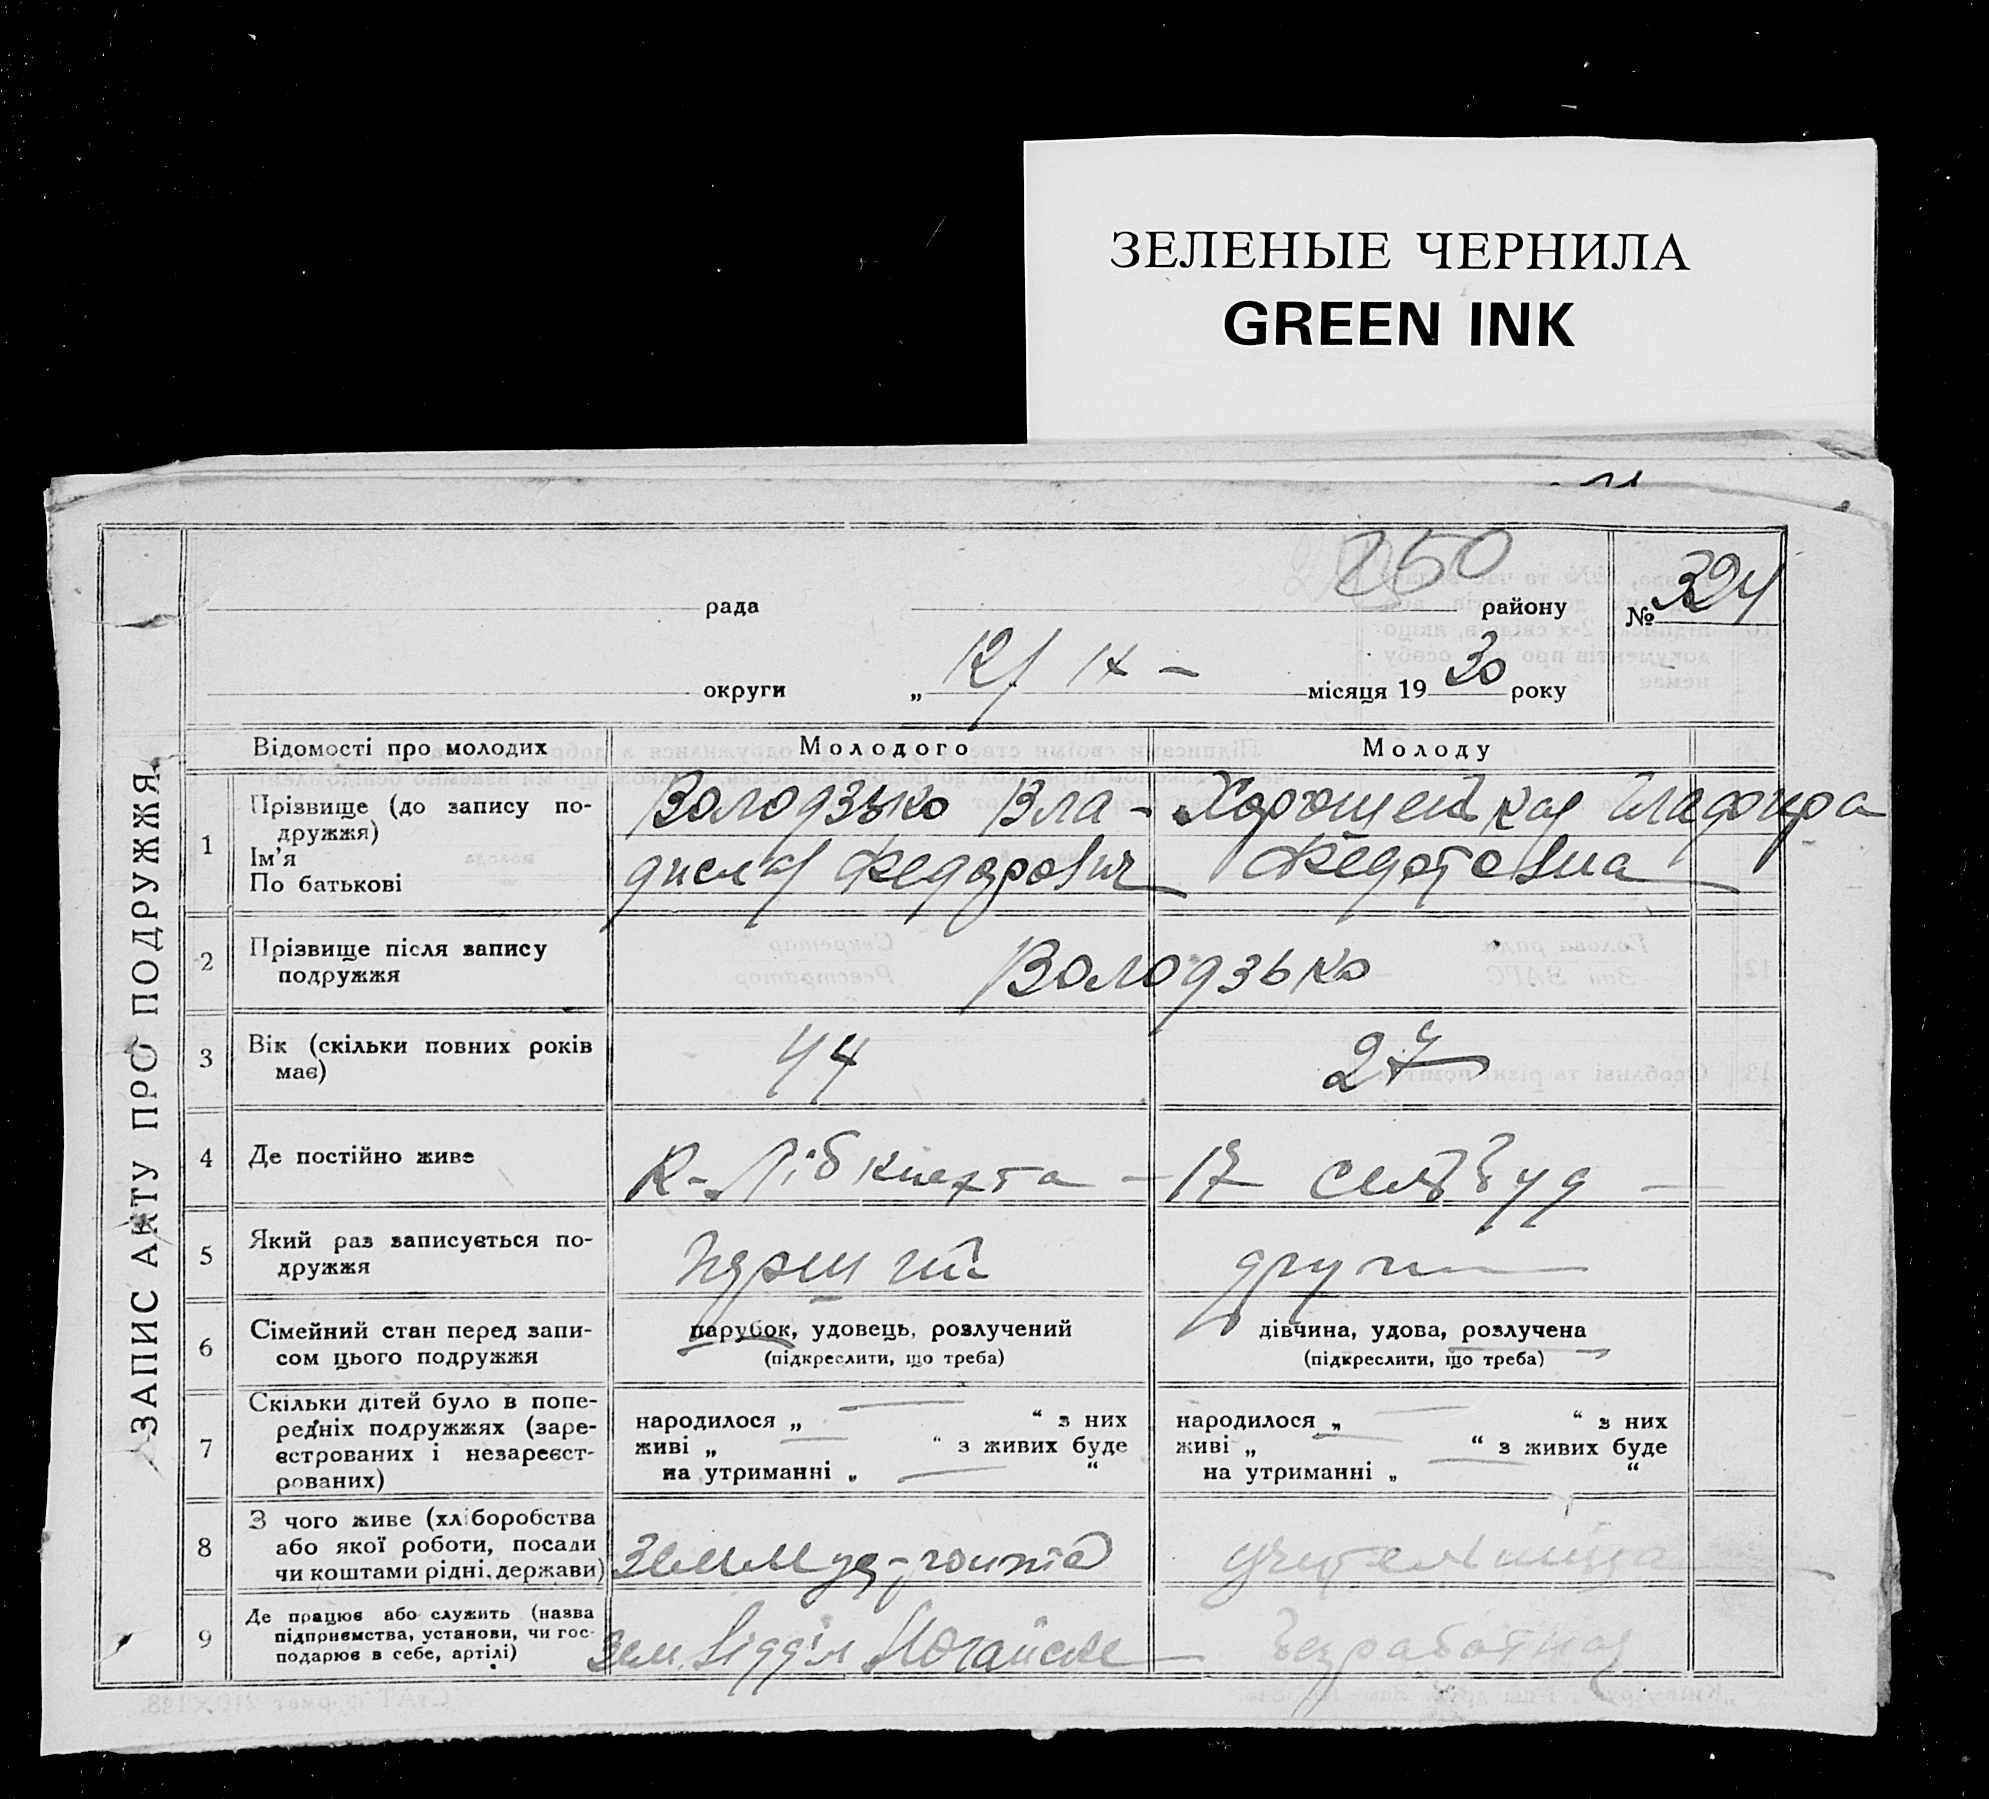 ЗЕЛЕНЫЕ ЧЕРНИЛА
GREEN INK
ЗАПИС АКТУ ПРО ПОДРУЖЖЯ
250
рада району № 324
округи „ 12/ IX – місяця 19 30 року
Відомості про молодих Молодого Молоду
1 Прізвище (до запису по-
дружжя)
Ім’я
По батькові
Володзько Вла-
дислав Федорович
Федотовна
2 Прізвище після запису
подружжя
Володзько
3 Вік (скільки повних років
має)
44
27
4 Де постійно живе
К-Лібкнехта – 17
5 Який раз записується по-
дружжя
перший
6 Сімейний стан перед запи-
сом цього подружжя
парубок, удовець, розлучений
(підкреслити, що треба)
дівчина, удова, розлучена
(підкреслити, що треба)
7 Скільки дітей було в попе-
редніх подружжях (заре-
єстрованих і незареєст-
рованих)
народилося „ “ з них
живі „ “ з живих буде
на утриманні „ “
народилося „ “ з них
живі „ “ з живих буде
на утриманні „ “
8 З чого живе (хліборобства
або якої роботи, посади
чи коштами рідні, держави)
учительница
9 Де працює або служить (назва
підприємства, установи, чи гос-
подарює в себе, артілі)
Зем. відділ
безработная